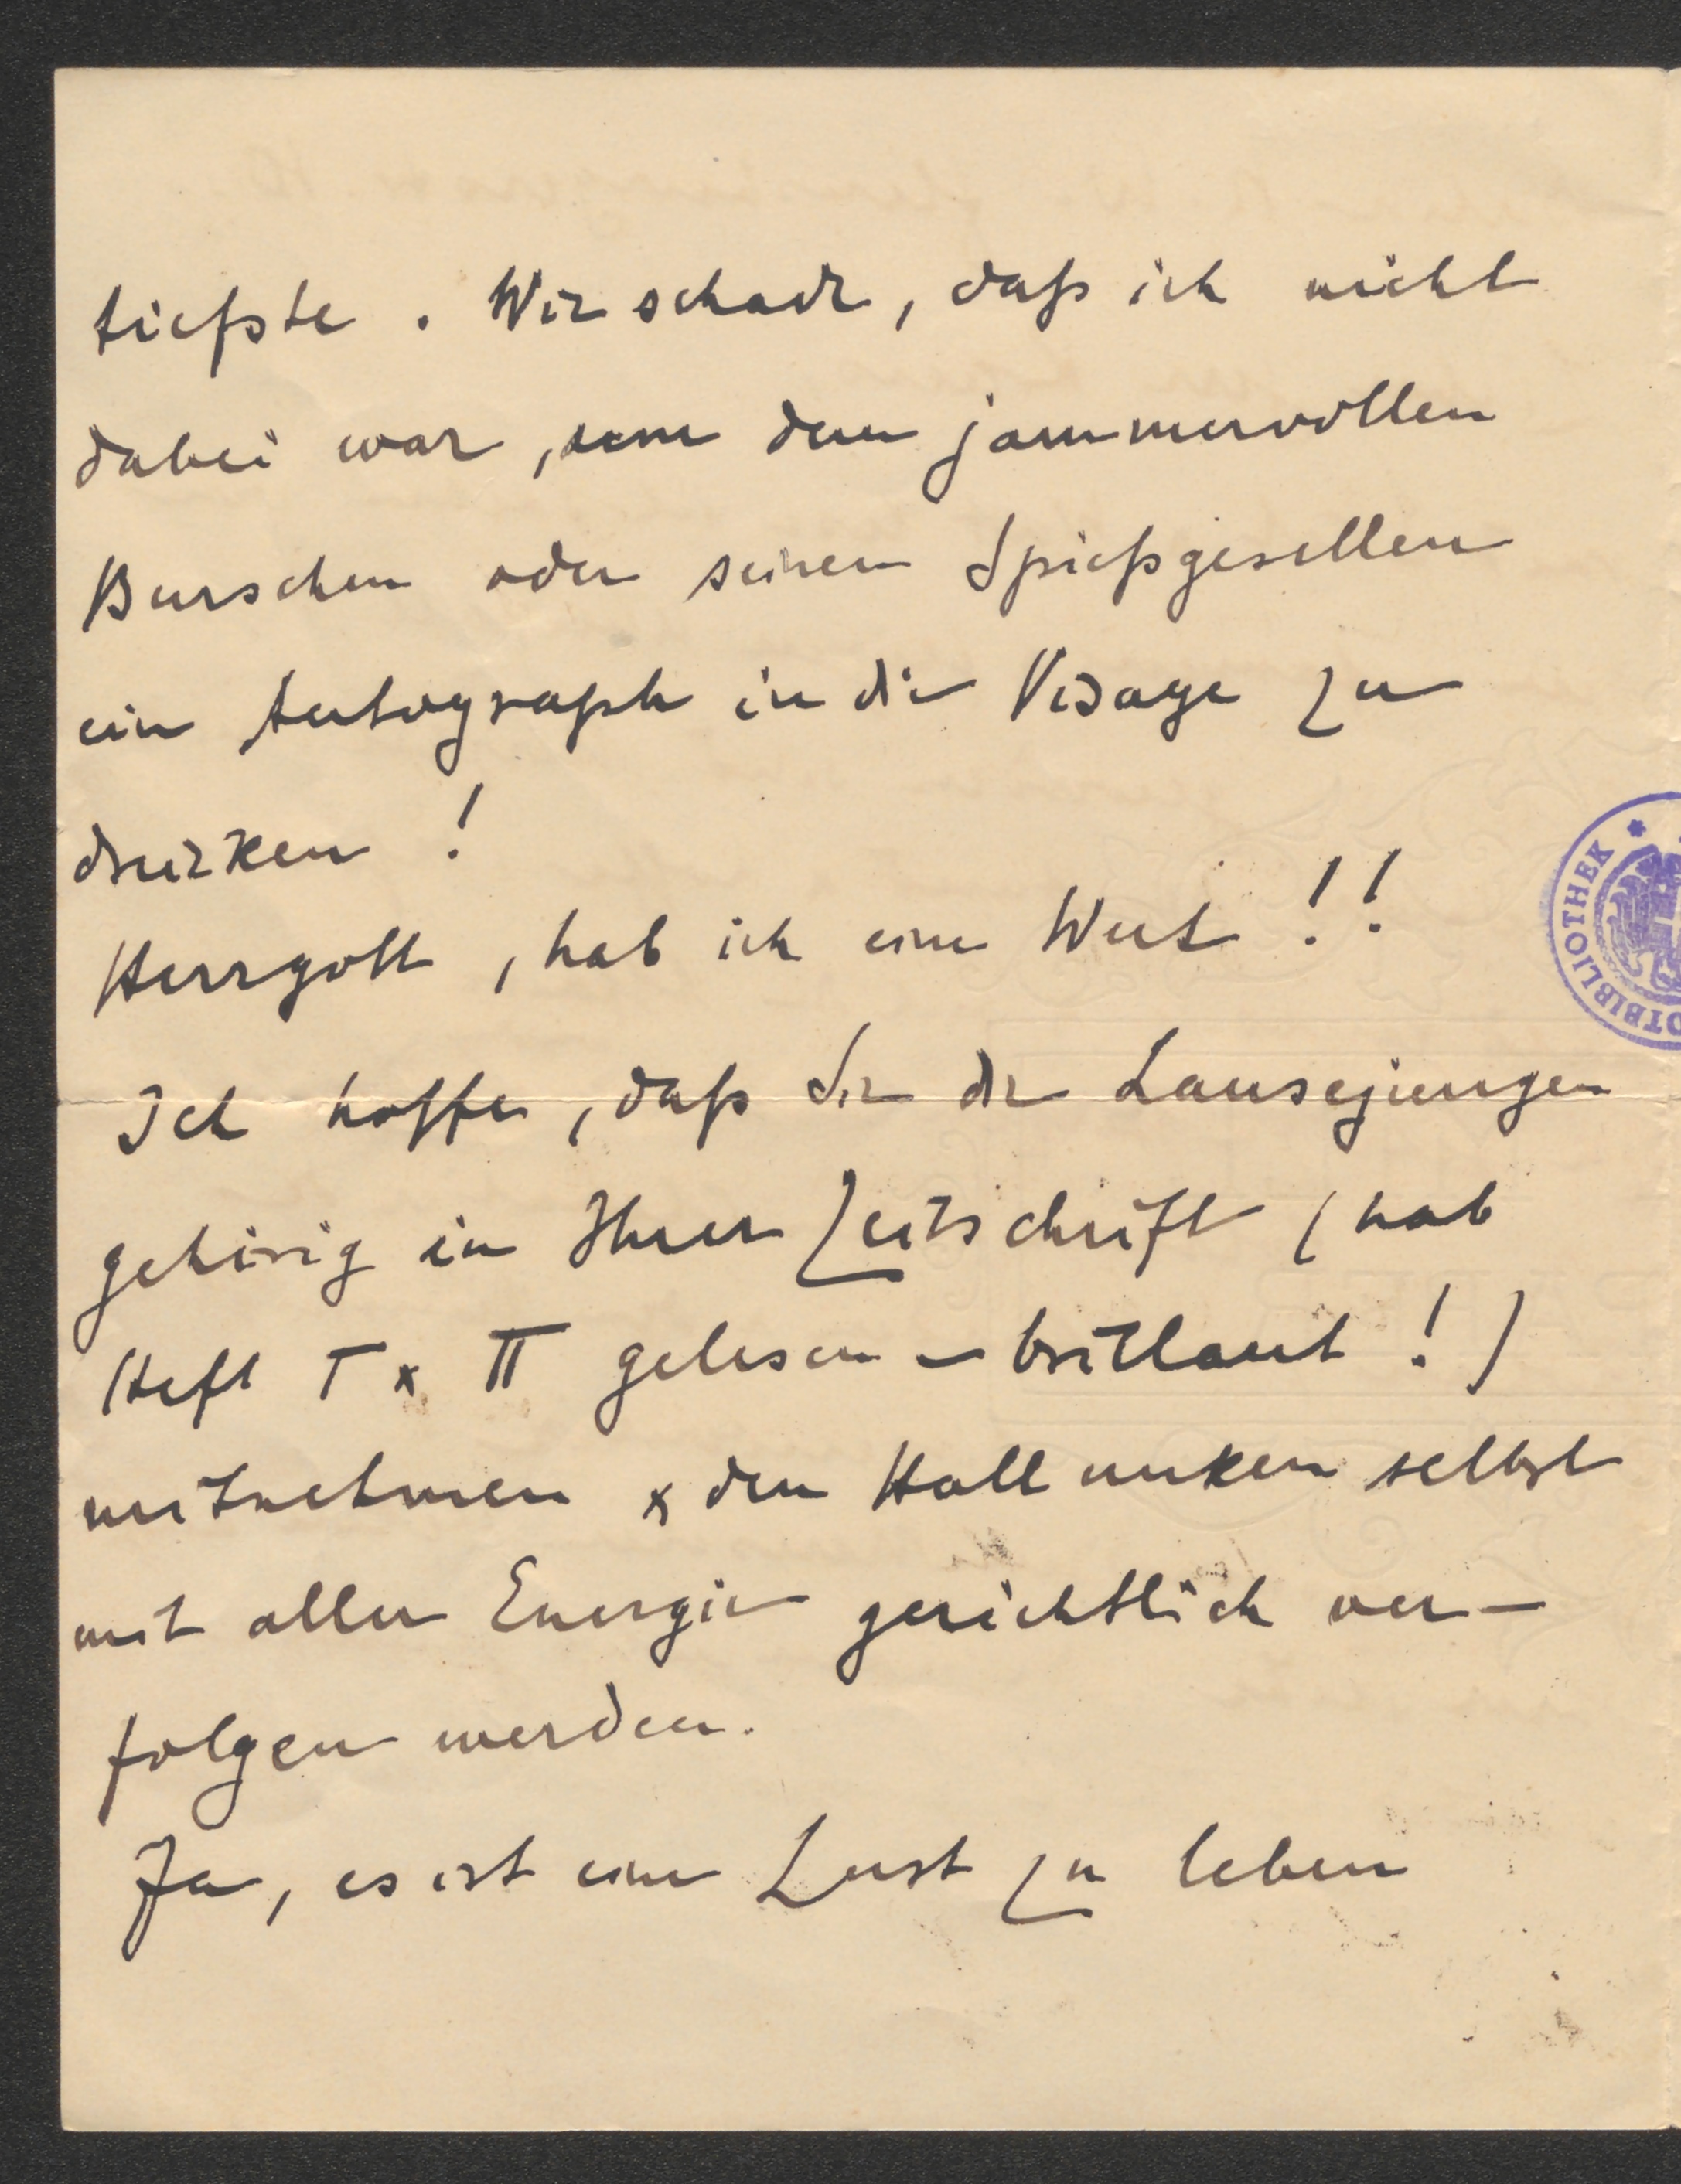 tiefste. Wie schade, daß ich nicht
dabei war, um dem jammervollen
Burschen oder seinen Spießgesellen
ein Autograph in die Visage zu
drücken!
Herrgott, hab ich eine Wut!!
Ich hoffe, daß Sie die Lausejungen
gehörig in Ihrer Zeitschrift (hab
Heft I & II gelesen – brillant!)
mitnehmen & den Hallunken selbst
mit aller Energie gerichtlich ver-
folgen werden.
Ja, es ist eine Lust zu leben